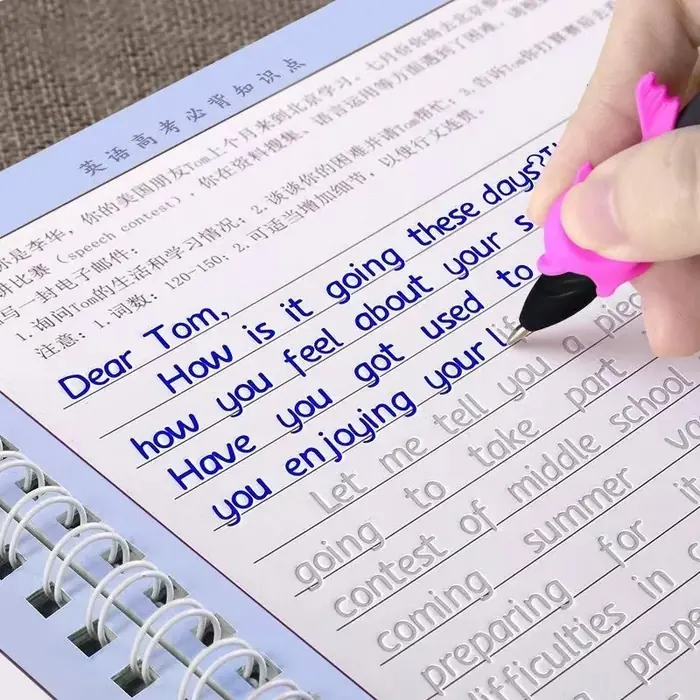 英语高考必背知识点
你是李华，你的美国朋友Tom上个月来到北京学习。七月份你将去北京参
讲比赛（speech contest），你在资料搜集、语言运用等方面遇到了困难。请根
写一封电子邮件：
1. 询问Tom的生活和学习情况；2. 谈谈你的困难并请Tom帮忙；3. 告诉Tom你打算赛后去看
注意：1. 词数：120-150；2. 可适当增加细节，以使行文连贯。
Dear Tom,
How is it going these days?
how you feel about your s
Have you got used to
you enjoying your life
Let me tell you a piec
going to take part
contest of middle school
coming summer va
preparing for it
difficulties in
prope